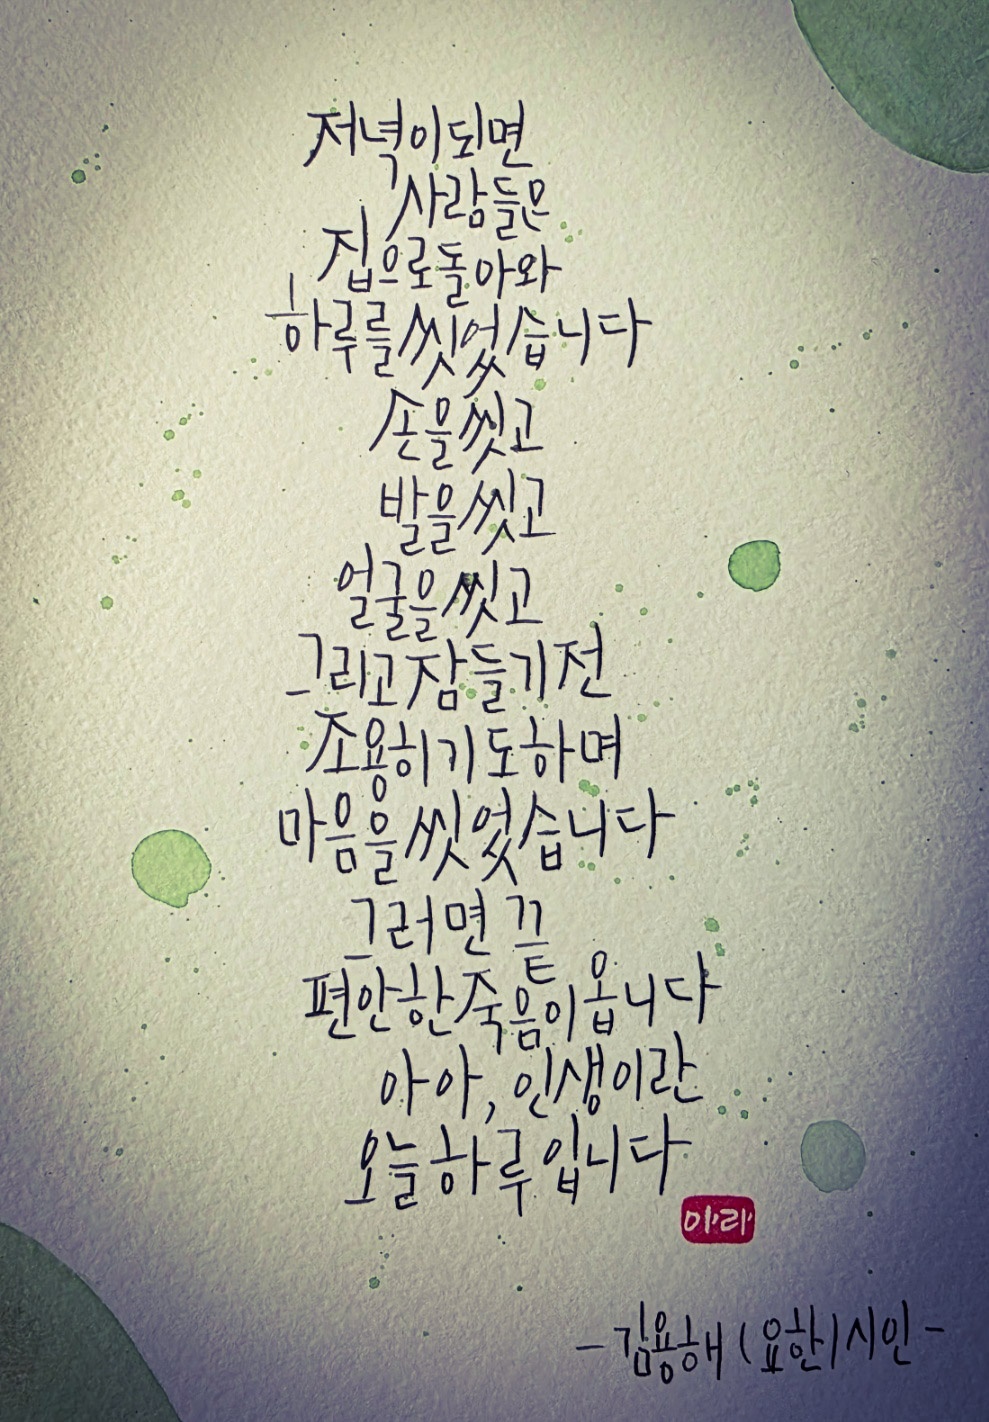 저녁이 되면
사람들은
집으로 돌아와
하루를 씻었습니다
손을 씻고
발을 씻고
얼굴을 씻고
그리고 잠들기 전
조용히 기도하며
마음을 씻었습니다
그러면 끝
편안한 죽음이 옵니다
아아, 인생이란
오늘 하루입니다
- 김용해 (요한) 시인 -